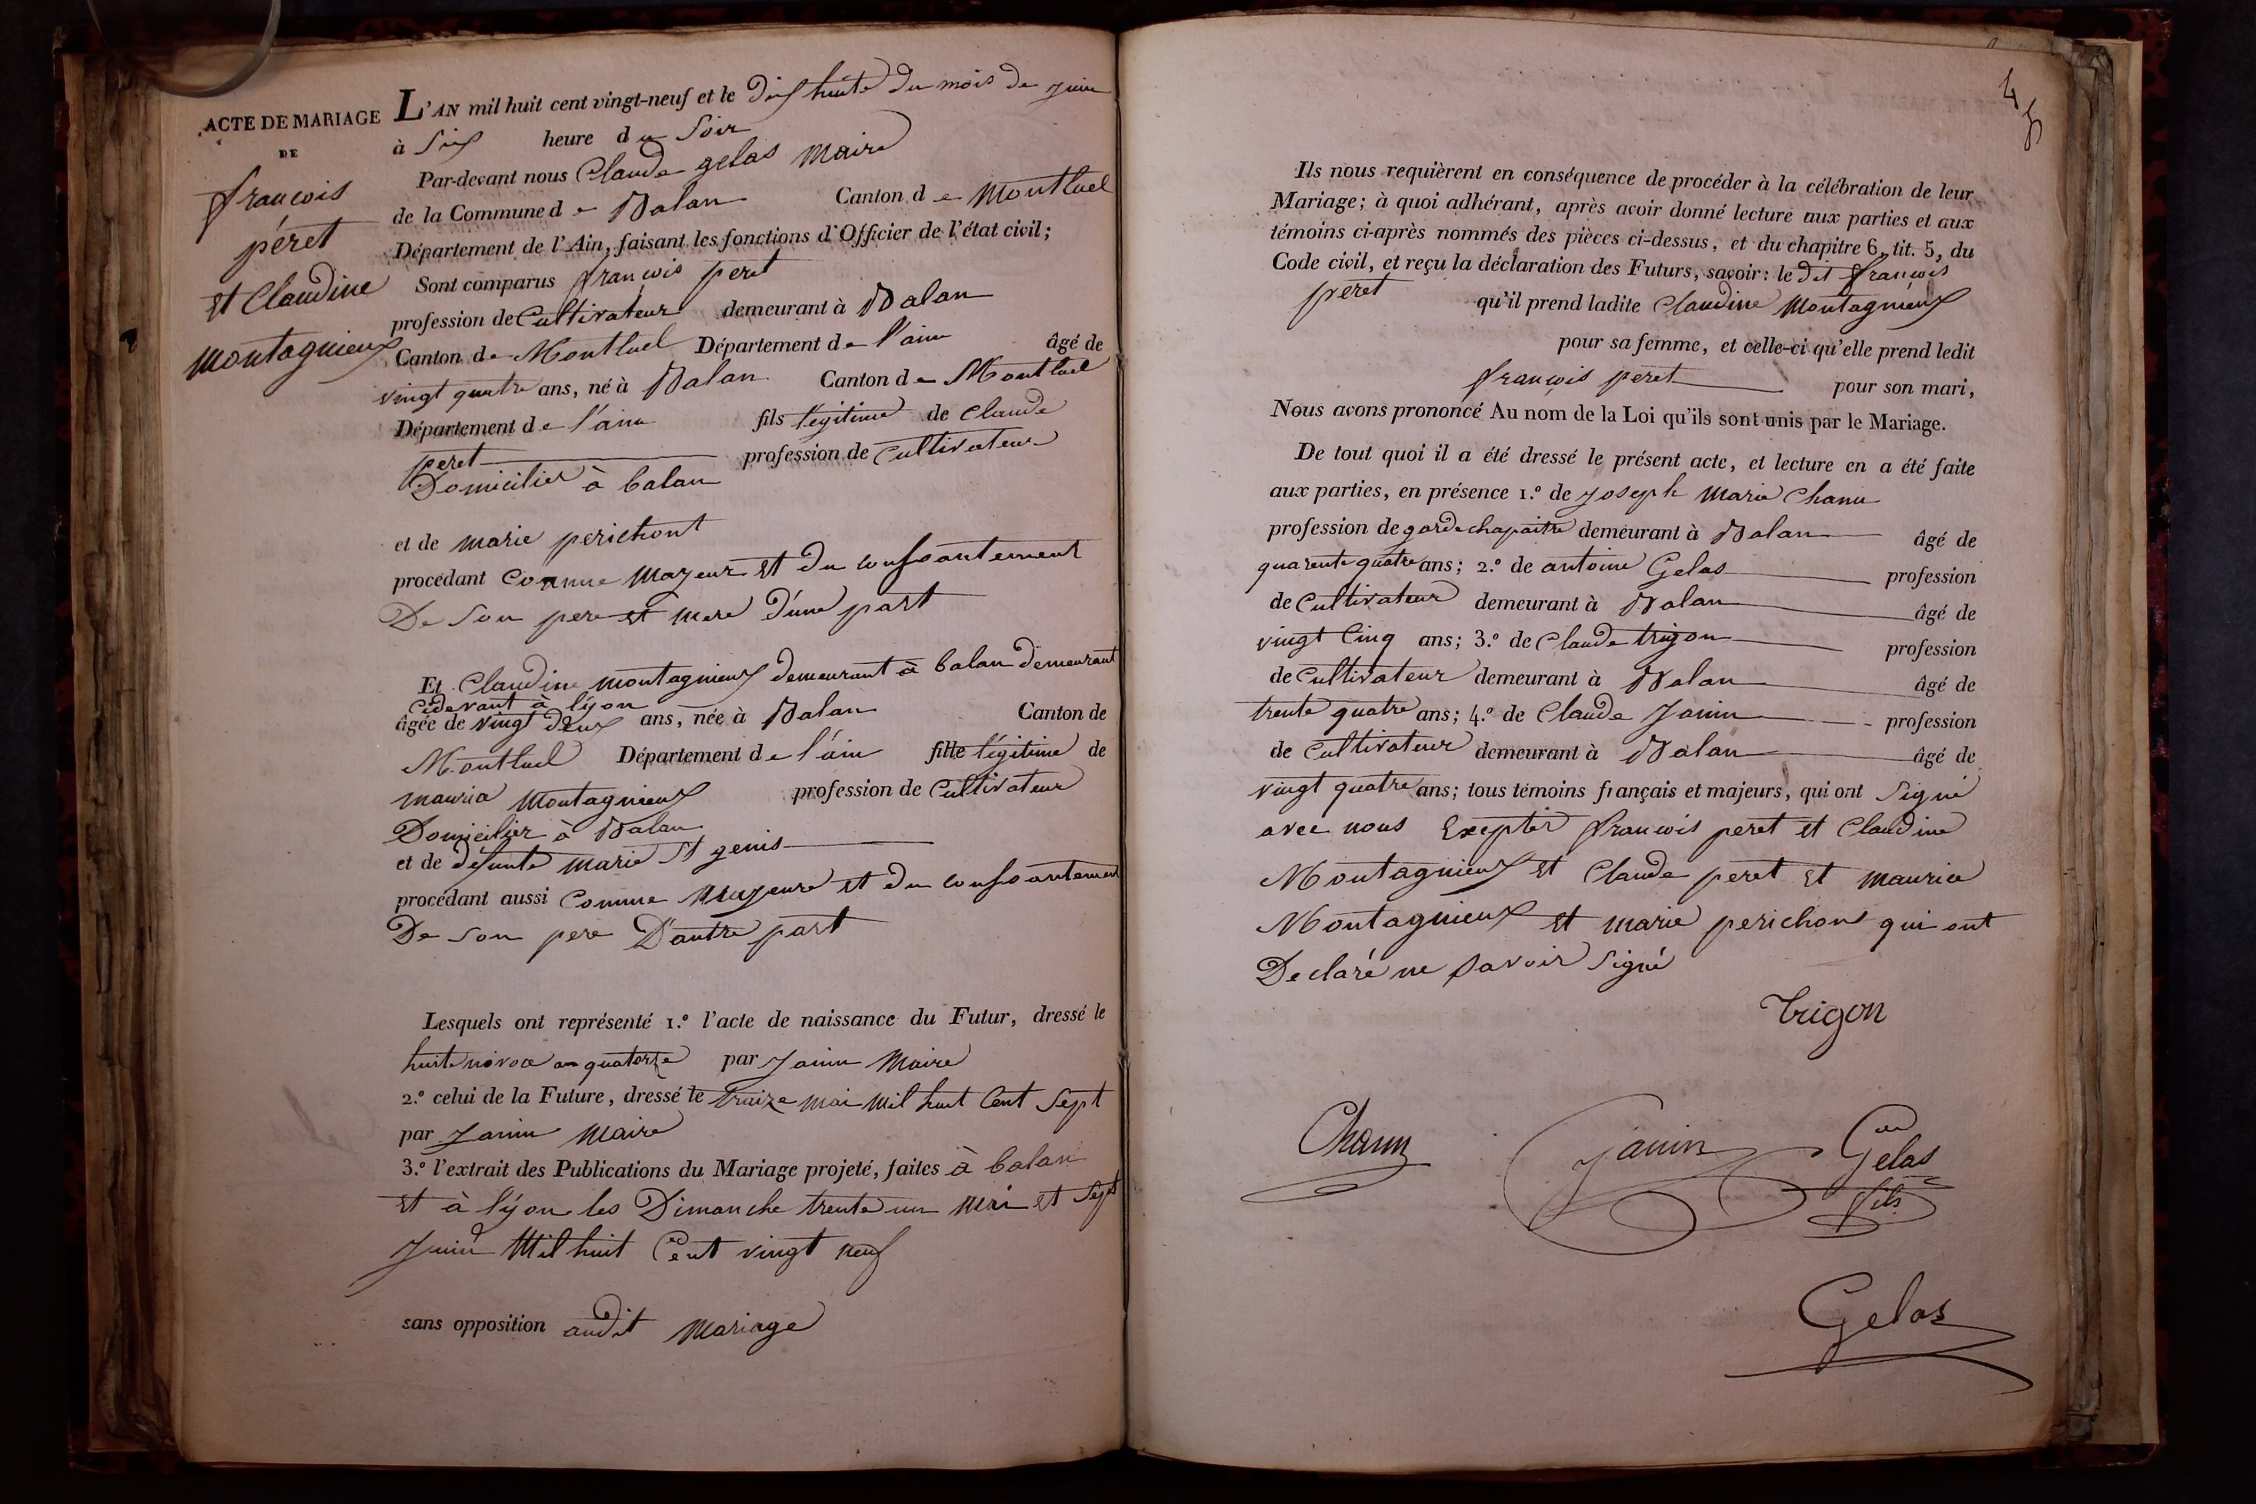 ACTE DE MARIAGE
DE
françois
péret
et Claudine
montagnieux
L'AN mil huit cent vingt-neuf et le dix huite du mois de juin
à Six heure du Soir
Par-devant nous Claude gelas maire
de la Commune de Balan Canton de Montluel
Département de l'Ain, faisant les fonctions d'Officier de l'état civil;
Sont comparus françois peret
profession de Cultivateur demeurant à Balan
Canton de Montluel Département de l'ain âgé de
vingt quatre ans, né à Balan Canton de Montluel
Département de l'ain fils légitime de Claude
peret profession de Cultivateur
Domicilier à balan
et de marie perichont
procédant Comme Majeur et du consantement
De Son pere et mere d'une part
Et Claudine montagnieux demeurant à balan demeurant
cidevant à lyon
âgée de vingt deux ans, née à Balan Canton de
Montluel Département de l'ain fille légitime de
maurice Montagnieux profession de Cultivateur
Domicilier à Balan
et de défunte marie St genis
procédant aussi Comme Majeure et du consantement
De Son pere D'autre part
Lesquels ont représenté 1.º l'acte de naissance du Futur, dressé le
huite nivose an quatorze par Janin Maire
2.º celui de la Future, dressé le traize mai mil huit Cent Sept
par Janin Maire
3.º l'extrait des Publications du Mariage projeté, faites à balan
et à lyon les Dimanche trente un mai et Sept
Juin Mil huit Cent vingt neuf
sans opposition audit mariage
45
Ils nous requièrent en conséquence de procéder à la célébration de leur
Mariage; à quoi adhérant, après avoir donné lecture aux parties et aux
témoins ci-après nommés des pièces ci-dessus, et du chapitre 6, tit. 5, du
Code civil, et reçu la déclaration des Futurs, savoir: le dit françois
peret qu'il prend ladite Claudine Montagnieux
pour sa femme, et celle-ci qu'elle prend ledit
françois peret pour son mari,
Nous avons prononcé Au nom de la Loi qu'ils sont unis par le Mariage.
De tout quoi il a été dressé le présent acte, et lecture en a été faite
aux parties, en présence 1.º de Joseph Marie Chanu
profession de garde chapaitre demeurant à Balan âgé de
quarente quatre ans; 2.º de antoine Gelas profession
de Cultivateur demeurant à Balan âgé de
vingt Cinq ans; 3.º de Claude trigon profession
de Cultivateur demeurant à Balan âgé de
trente quatre ans; 4.º de Claude Janin profession
de Cultivateur demeurant à Balan âgé de
vingt quatre ans; tous témoins français et majeurs, qui ont Signé
avec nous Excepter françois peret et Claudine
Montagnieux et Claude peret et maurice
Montagnieux et marie perichon qui ont
Declaré ne Savoir Signé
Trigon
Janin
Gelas
fils
Gelas